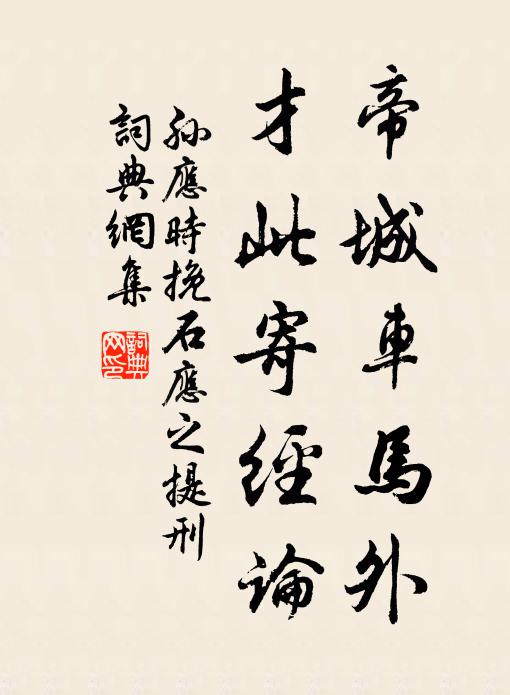 帝城車馬外
才此寄經論
孫應時挽石應之提刑
詞典網集
詞典網印